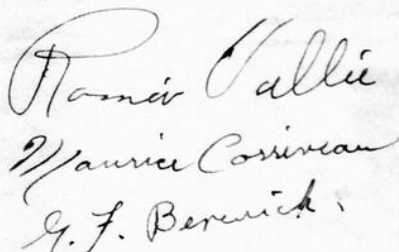 Roméo Vallie
Maurice Corriveau
G. F. Berwick.